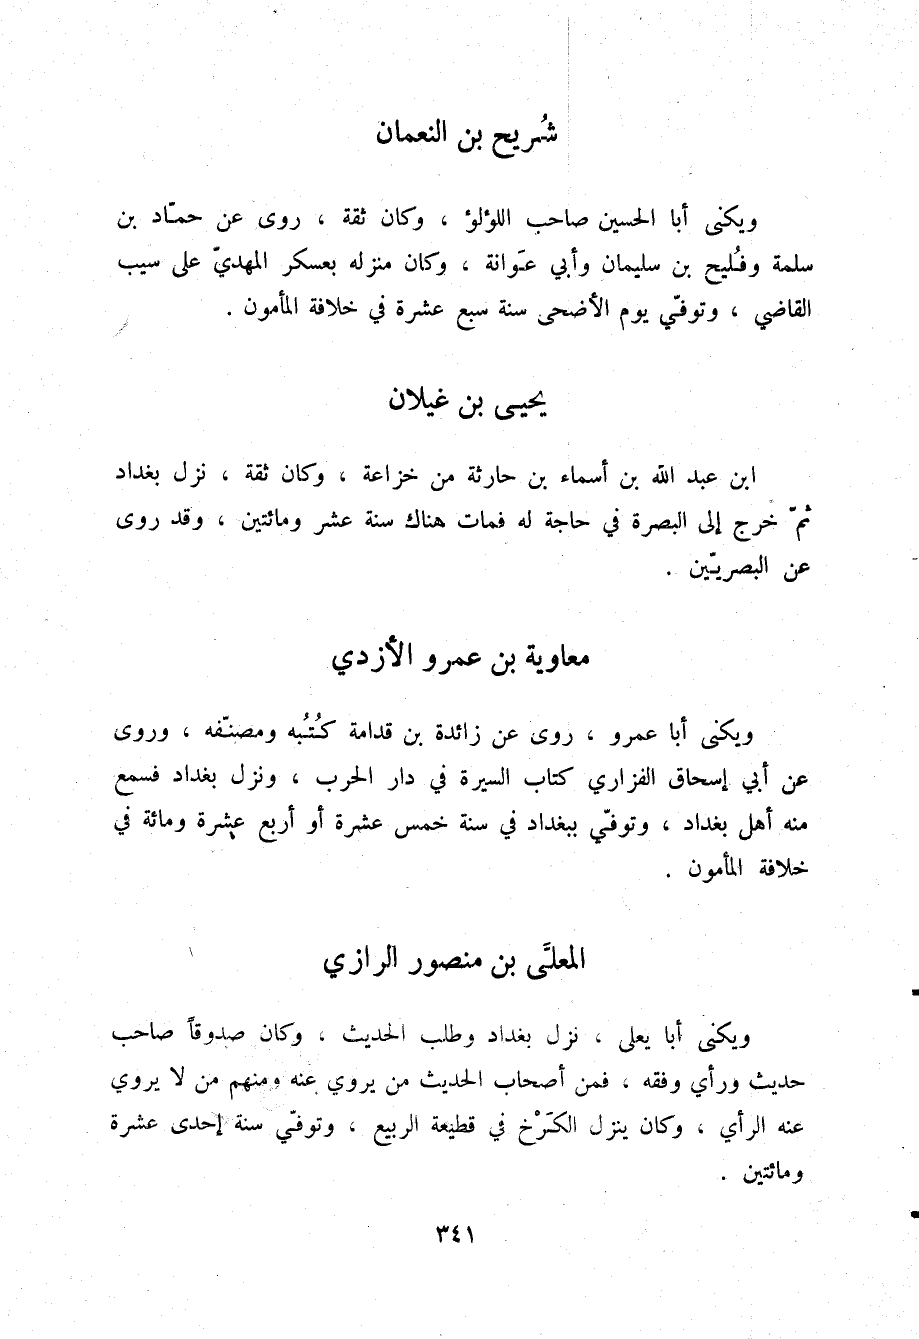 شُريح بن النعمان
ويكنى أبا الحسين صاحب اللؤلؤ ، وكان ثقة ، روى عن حمّاد بن
سلمة وفُليح بن سليمان وأبي عَوانة ، وكان منزله بعسكر المهديّ على سيب
القاضي ، وتوفّي يوم الأضحى سنة سبع عشرة في خلافة المأمون .
يحيى بن غيلان
ابن عبد الله بن أسماء بن حارثة من خزاعة ، وكان ثقة ، نزل بغداد
ثمّ خرج إلى البصرة في حاجة له فمات هناك سنة عشر ومائتين ، وقد روى
عن البصريّين .
معاوية بن عمرو الأزدي
ويكنى أبا عمرو ، روى عن زائدة بن قدامة كُتُبه ومصنّفه ، وروى
عن أبي إسحاق الفزاري كتاب السيرة في دار الحرب ، ونزل بغداد فسمع
منه أهل بغداد ، وتوفّي ببغداد في سنة خمس عشرة أو أربع عشرة ومائة في
خلافة المأمون .
المعلَّى بن منصور الرازي
ويكنى أبا يعلى ، نزل بغداد وطلب الحديث ، وكان صدوقاً صاحب
حديث ورأي وفقه ، فمن أصحاب الحديث من يروي عنه ومنهم من لا يروي
عنه الرأي ، وكان ينزل الكَرْخ في قطيعة الربيع ، وتوفّي سنة إحدى عشرة
ومائتين .
٣٤١